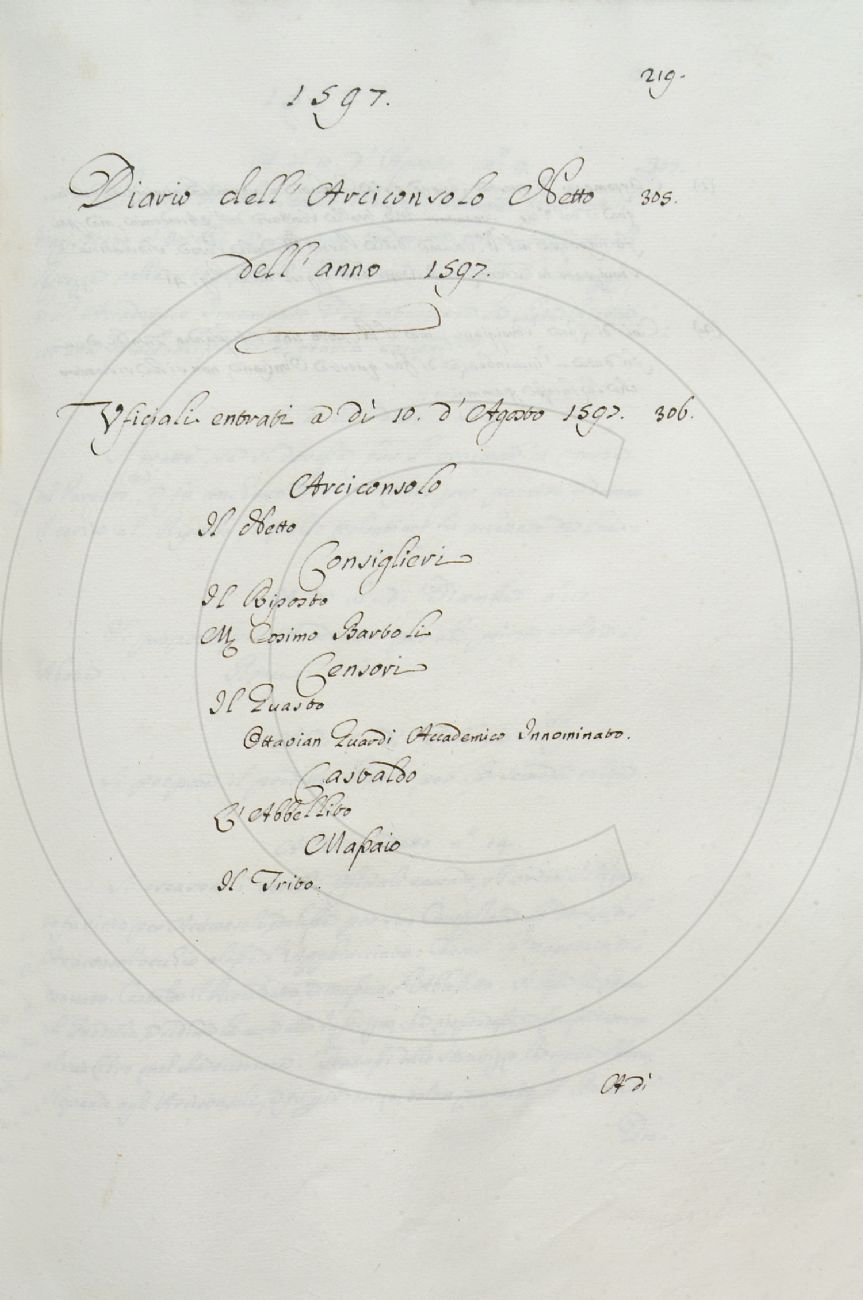 219.
1597.
Diario dell'Arciconsolo Netto 305.
dell'anno 1597.
Vficiali entrati a dì 10. d'Agosto 1597. 306.
Arciconsolo
Il Netto
Consiglieri
Il Riposto
M. Cosimo Bartoli
Censori
Il Guasto
Ottavian Guardi Accademico Innominato.
Castaldo
L'Abbellito
Massaio
Il Trito.
A dì